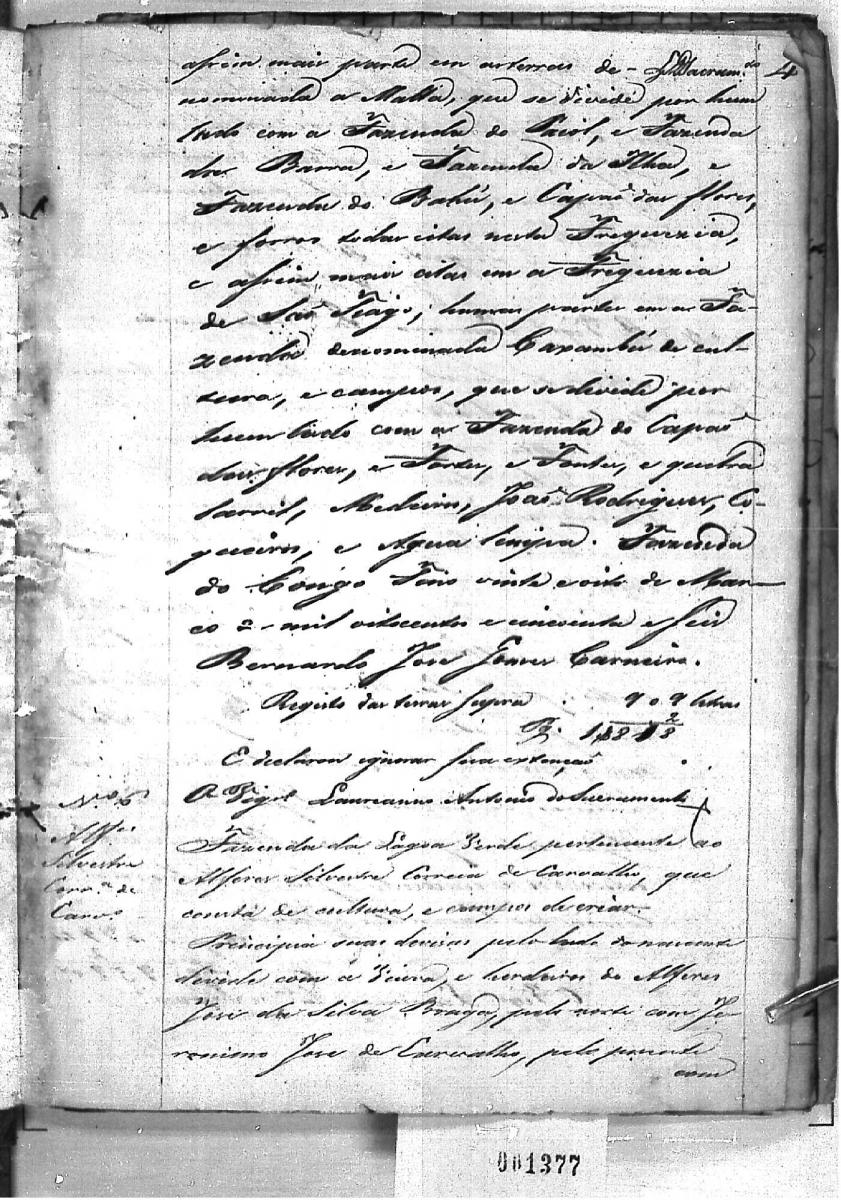 assim mais parte em as terras de- Sacram.to 4
nominada a Matta, que se divide por hum
lado com a Fazenda do Paiol, e Fazenda
da Barra, e Fazenda da Ilha, e
Fazenda do Bahú, e Capaõ das flores,
e forros todas citas nesta Freguezia,
e assim mais citas em a Freguezia
de Saõ Tiago, humas partes em a Fa-
zenda denominada Caxambú de cul-
tura, e campos, que se divide por
hum lado com a Fazenda do Capaõ
das flores, e Fortes, e Fontes, e quebra
barril, Medeiros, Joaõ Rodrigues, Co-
queiros, e Agua limpa. Fazenda
do Congo Fino vinte e oito de Mar-
co 2- mil oitocentos e cincoenta e seis
Bernardo Jose Gomes Carneiro.
Registo das terras supra 909 letras
R. 1818
E declarou ignorar sua extençaõ
O Vig.ro Laureanno Antonio do Sacramento
Nº 6
Alff.es
Silvestre
Corr.a de
Carv.o
Fazenda da Lagoa Verde pertencente ao
Alferes Silvestre Correia de Carvalho, que
consta de cultura, e campos de criar.
Principia suas devisas pelo lado do nascente
devide com a Viuva, e herdeiros do Alferes
José da Silva Braga, pelo norte com Je-
ronimo Jose de Carvalho, pelo poente
com
001377